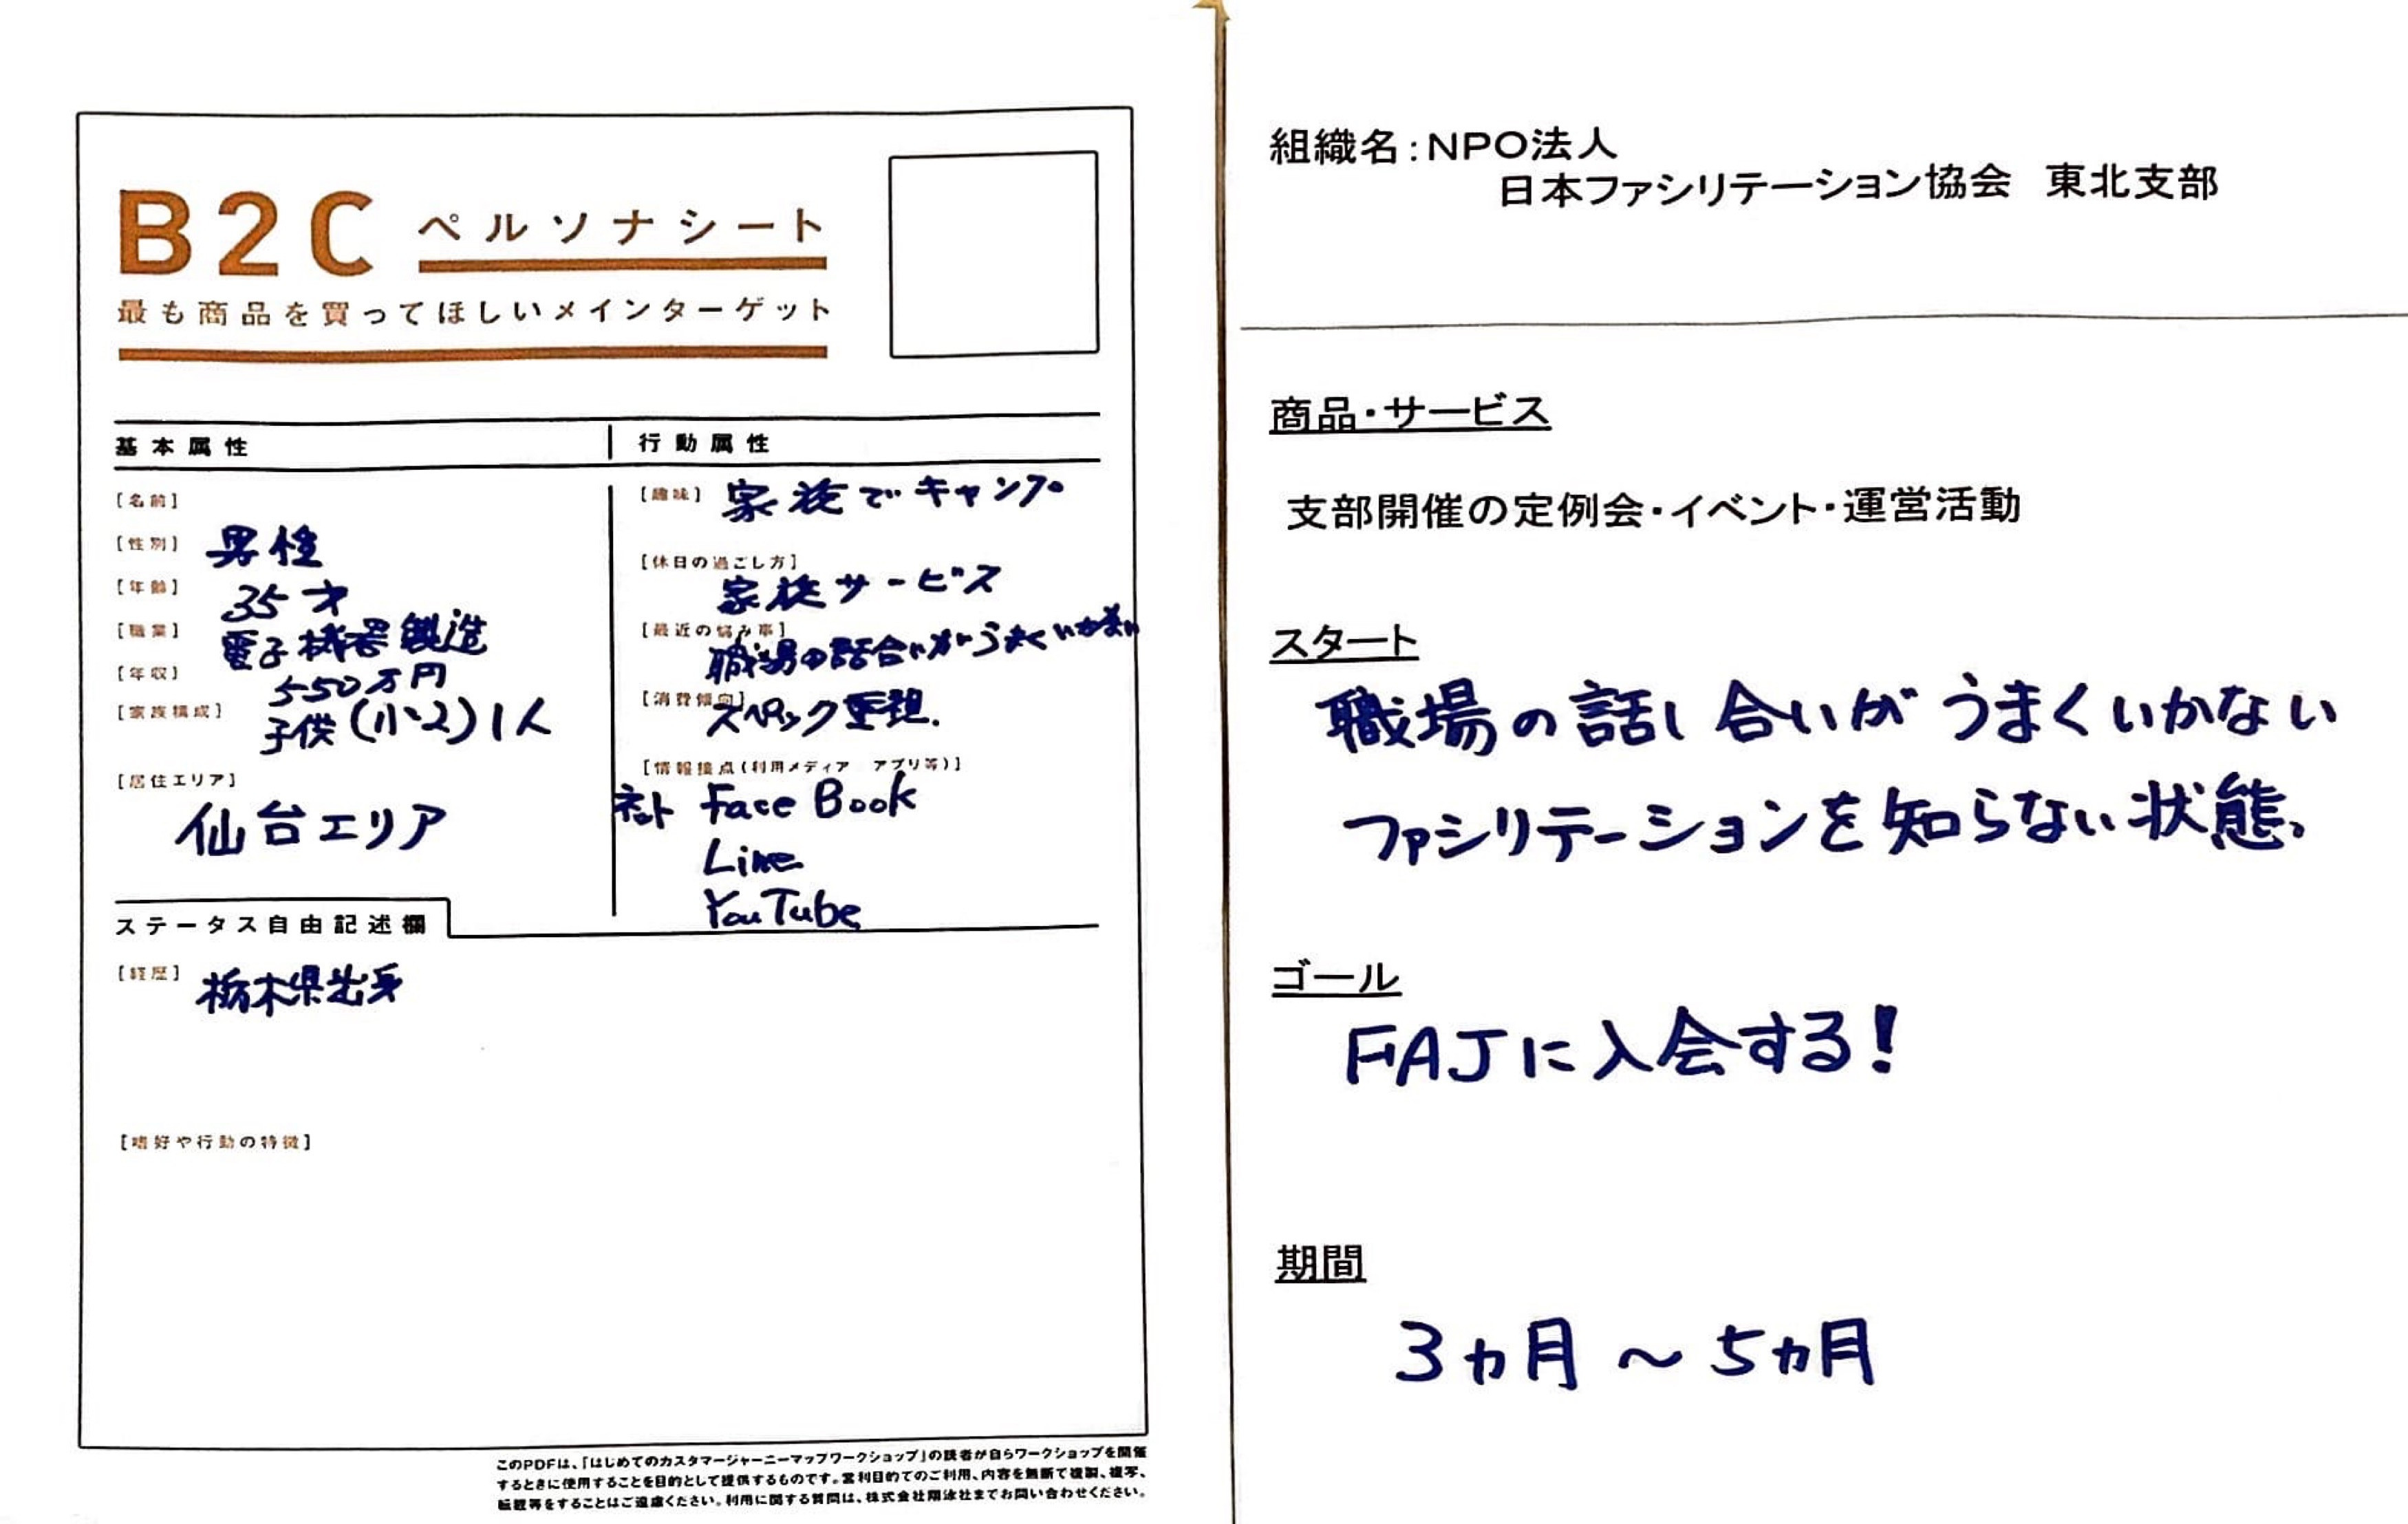 B2C ペルソナシート
最も商品を買ってほしいメインターゲット
基本属性
[名前]
[性別] 男性
[年齢] 35才
[職業] 電子機器製造
[年収] 550万円
[家族構成] 子供(小2)1人
[居住エリア]
仙台エリア
行動属性
[趣味] 家族でキャンプ
[休日の過ごし方]
家族サービス
[最近の悩み事]
職場の話合いがうまくいかない
[消費傾向]
スペック重視.
[情報接点(利用メディア アプリ等)]
ネット Face Book
Line
YouTube
ステータス自由記述欄
[経歴] 栃木県出身
[嗜好や行動の特徴]
このPDFは、「はじめてのカスタマージャーニーマップワークショップ」の読者が自らワークショップを開催
するときに使用することを目的として提供するものです。営利目的でのご利用、内容を無断で複製、複写、
転載等をすることはご遠慮ください。利用に関する質問は、株式会社翔泳社までお問い合わせください。
組織名:NPO法人
日本ファシリテーション協会 東北支部
商品・サービス
支部開催の定例会・イベント・運営活動
スタート
職場の話し合いがうまくいかない
ファシリテーションを知らない状態、
ゴール
FAJに入会する!
期間
3カ月～5カ月